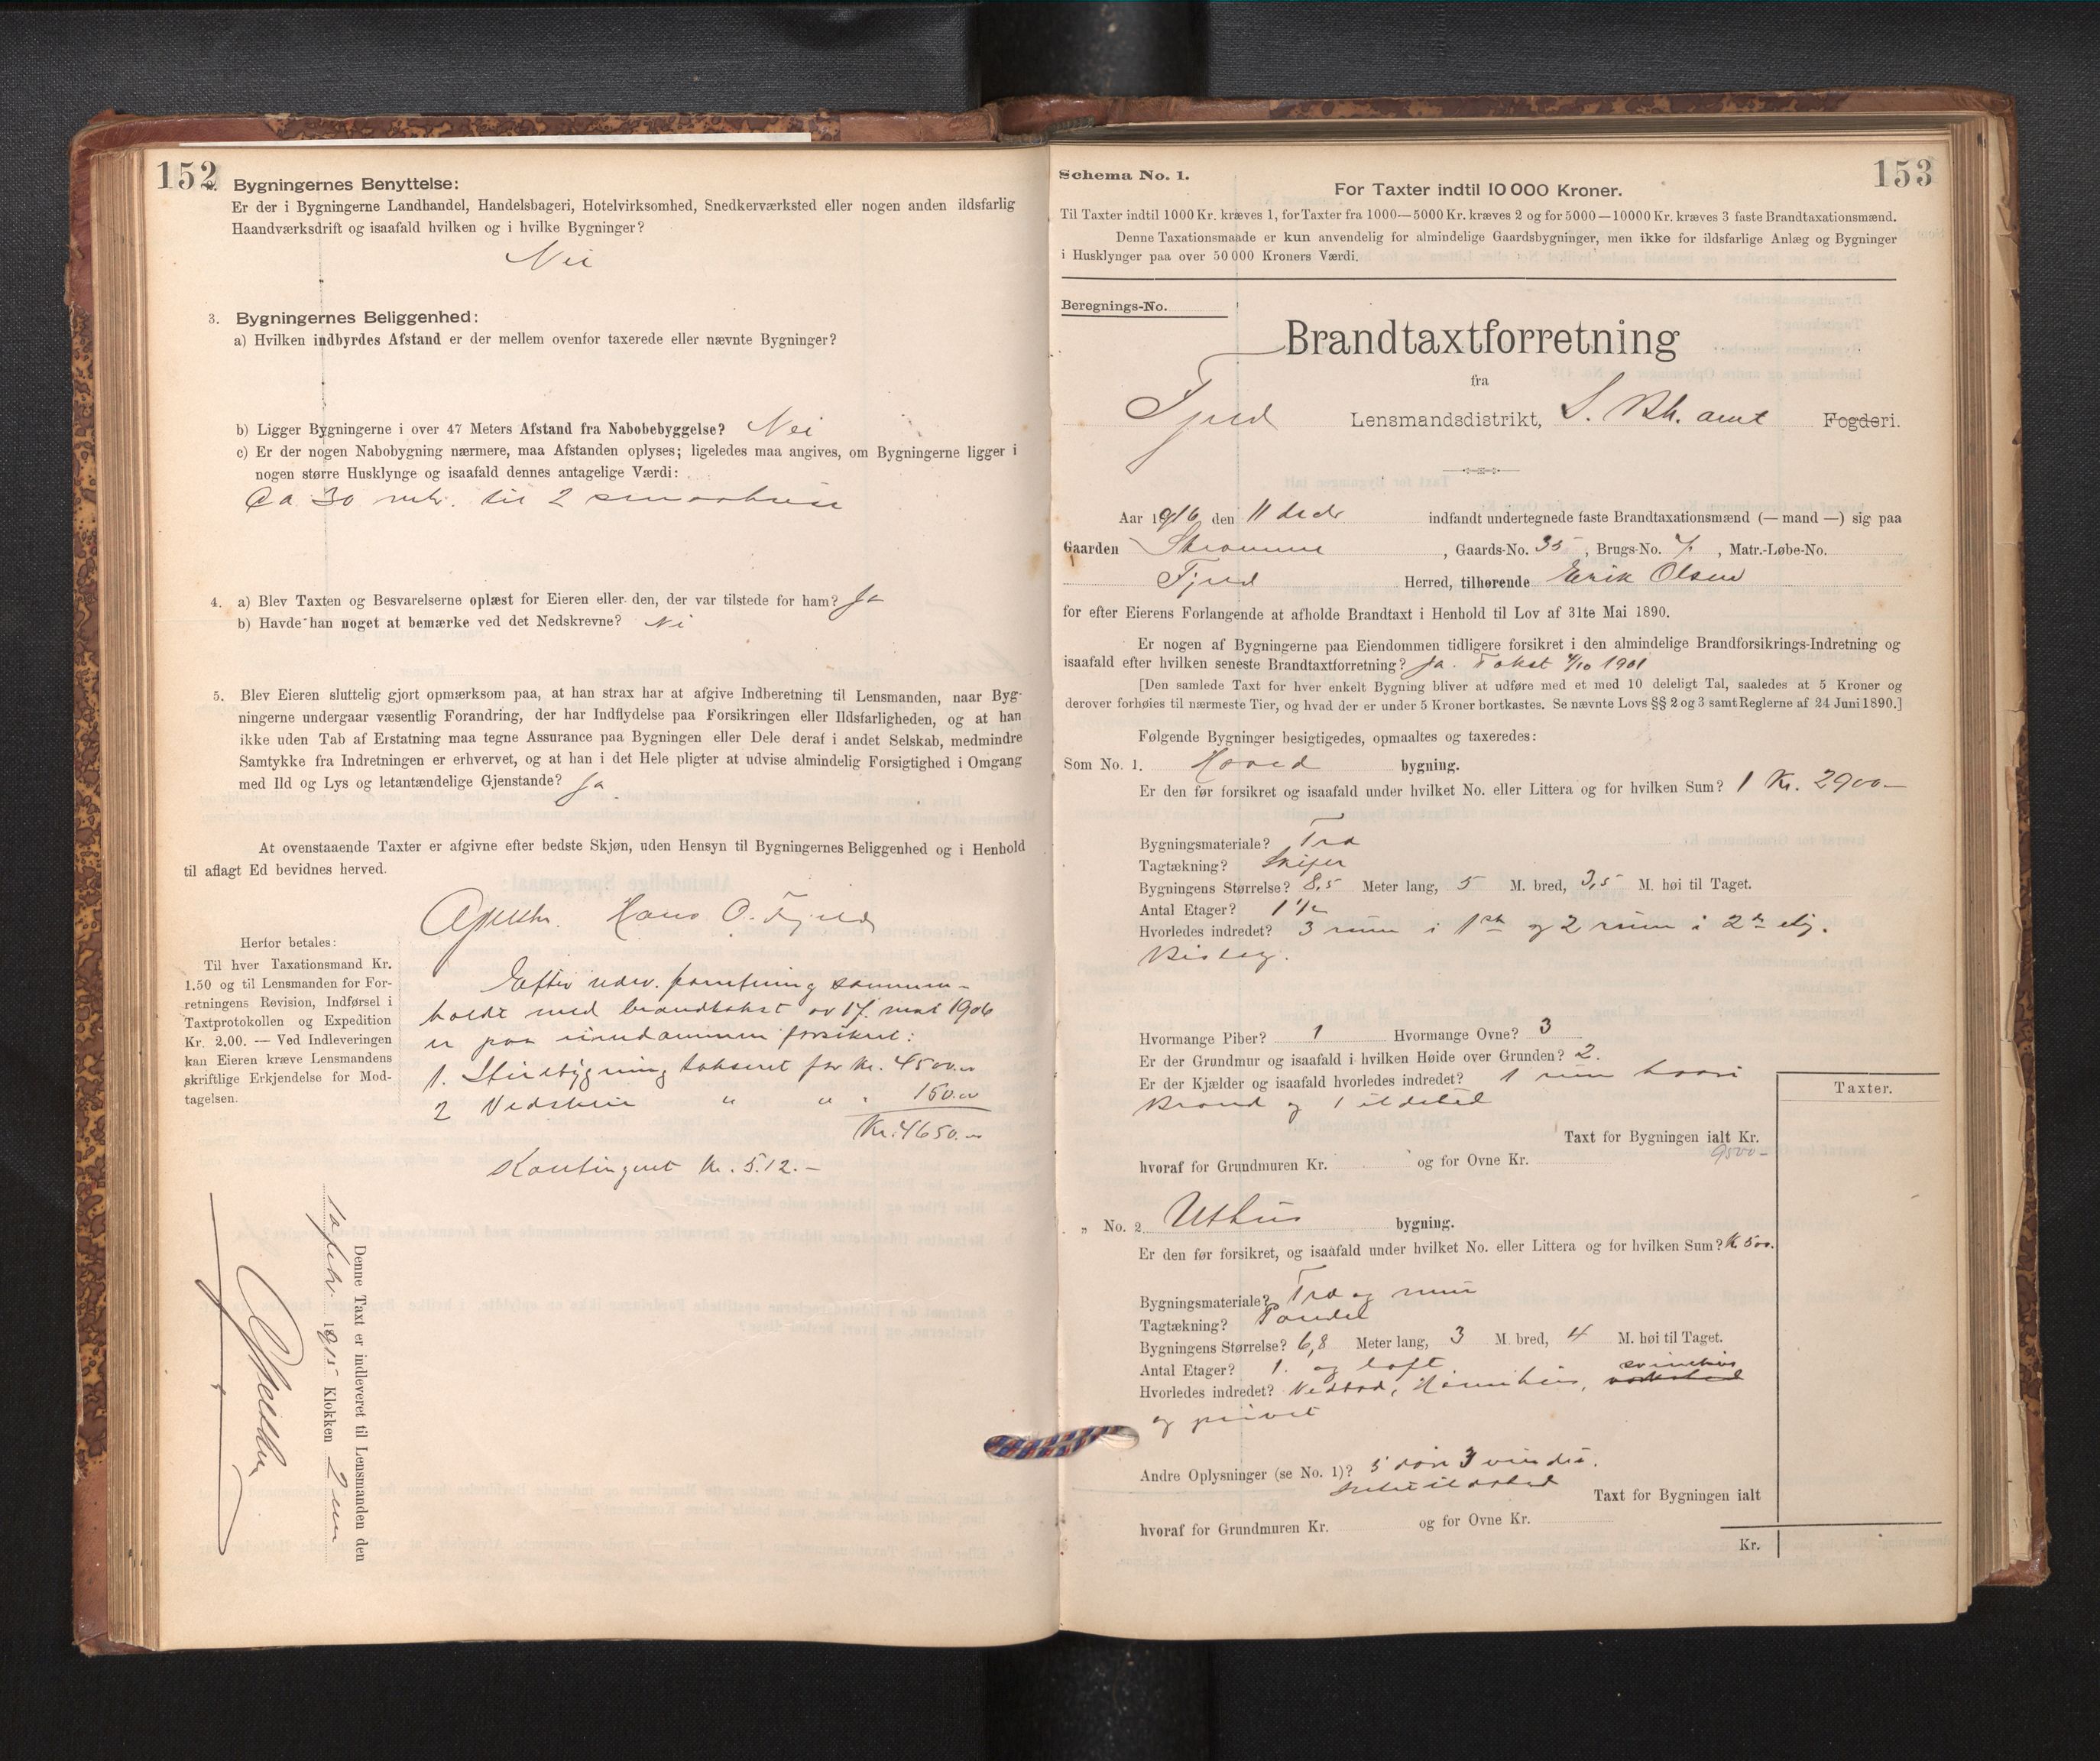 152
2. Bygningernes Benyttelse:
Er der i Bygningerne Landhandel, Handelsbageri, Hotelvirksomhed, Snedkerværksted eller nogen anden ildsfarlig
Haandværksdrift og isaafald hvilken og i hvilke Bygninger?
Nei
3. Bygningernes Beliggenhed:
a) Hvilken indbyrdes Afstand er der mellem ovenfor taxerede eller nævnte Bygninger?
b) Ligger Bygningerne i over 47 Meters Afstand fra Nabobebyggelse? Nei
c) Er der nogen Nabobygning nærmere, maa Afstanden oplyses; ligeledes maa angives, om Bygningerne ligger i
nogen større Husklynge og isaafald dennes antagelige Værdi:
Ca 30 mtr. til 2 smaahuse
4. a) Blev Taxten og Besvarelserne oplæst for Eieren eller den, der var tilstede for ham? Ja
b) Havde han noget at bemærke ved det Nedskrevne? Nei
5. Blev Eieren sluttelig gjort opmærksom paa, at han strax har at afgive Indberetning til Lensmanden, naar Byg-
ningerne undergaar væsentlig Forandring, der har Indflydelse paa Forsikringen eller Ildsfarligheden, og at han
ikke uden Tab af Erstatning maa tegne Assurance paa Bygningen eller Dele deraf i andet Selskab, medmindre
Samtykke fra Indretningen er erhvervet, og at han i det Hele pligter at udvise almindelig Forsigtighed i Omgang
med Ild og Lys og letantændelige Gjenstande? Ja
At ovenstaaende Taxter er afgivne efter bedste Skjøn, uden Hensyn til Bygningernes Beliggenhed og i Henhold
til aflagt Ed bevidnes herved.
Hans O. Fjeld
Herfor betales:
Til hver Taxationsmand Kr.
1.50 og til Lensmanden for For-
retningens Revision, Indførsel i
Taxtprotokollen og Expedition
Kr. 2.00. — Ved Indleveringen
kan Eieren kræve Lensmandens
skriftlige Erkjendelse for Mod-
tagelsen.
Efter nærv. forretning sammen-
holdt med brandtakst av 17. mai 1906
er paa eiendommen forsikret:
1. Stuebygning takseret for kr. 4500.00
2 Vedskur " " " 150.00
Kr. 4650.00
Kontingent kr. 5.12.-
Denne Taxt er indleveret til Lensmanden den
febr. 1915 Klokken 2 em
153
Schema No. 1.
For Taxter indtil 10 000 Kroner.
Til Taxter indtil 1000 Kr. kræves 1, for Taxter fra 1000—5000 Kr. kræves 2 og for 5000—10000 Kr. kræves 3 faste Brandtaxationsmænd.
Denne Taxationsmaade er kun anvendelig for almindelige Gaardsbygninger, men ikke for ildsfarlige Anlæg og Bygninger
i Husklynger paa over 50 000 Kroners Værdi.
Beregnings-No.
Brandtaxtforretning
fra
Fjeld Lensmandsdistrikt, S. Bh. amt Fogderi.
Aar 1916 den 11 decbr indfandt undertegnede faste Brandtaxationsmænd (— mand —) sig paa
Gaarden Straumme, Gaards-No. 35, Brugs-No. 7, Matr.-Løbe-No.
Fjeld Herred, tilhørende Erik Olsen
for efter Eierens Forlangende at afholde Brandtaxt i Henhold til Lov af 31te Mai 1890.
Er nogen af Bygningerne paa Eiendommen tidligere forsikret i den almindelige Brandforsikrings-Indretning og
isaafald efter hvilken seneste Brandtaxtforretning? Ja. Takst /10 1901
[Den samlede Taxt for hver enkelt Bygning bliver at udføre med et med 10 deleligt Tal, saaledes at 5 Kroner og
derover forhøies til nærmeste Tier, og hvad der er under 5 Kroner bortkastes. Se nævnte Lovs §§ 2 og 3 samt Reglerne af 24 Juni 1890.]
Følgende Bygninger besigtigedes, opmaaltes og taxeredes:
Som No. 1. Hoved bygning.
Er den før forsikret og isaafald under hvilket No. eller Littera og for hvilken Sum? 1 Kr. 2900-
Bygningsmateriale? Træ
Tagtækning? Skifer
Bygningens Størrelse? 8,5 Meter lang, 5 M. bred, 3,5 M. høi til Taget.
Antal Etager? 1 1/2
Hvorledes indredet? 3 rum i 1ste og 2 rum i 2den etg.
Bislag.
Hvormange Piber? 1 Hvormange Ovne? 3
Er der Grundmur og isaafald i hvilken Høide over Grunden? 2.
Er der Kjælder og isaafald hvorledes indredet? 1 rum hvori
Brønd og 1 ildsted
Taxter.
Taxt for Bygningen ialt Kr.
hvoraf for Grundmuren Kr. og for Ovne Kr.
„ No. 2 Uthus bygning.
Er den før forsikret, og isaafald under hvilket No. eller Littera og for hvilken Sum? K 500.
Bygningsmateriale? Træ og mur
Tagtækning? Pander
Bygningens Størrelse? 6,8 Meter lang, 3 M. bred, 4 M. høi til Taget.
Antal Etager? 1. og loft
Hvorledes indredet? Vedbod, Hønsehus, svinehus
og privet
Andre Oplysninger (se No. 1)? 5 døre 3 vinduer.
Intet ildsted
Taxt for Bygningen ialt
hvoraf for Grundmuren Kr. og for Ovne Kr.
Kr.